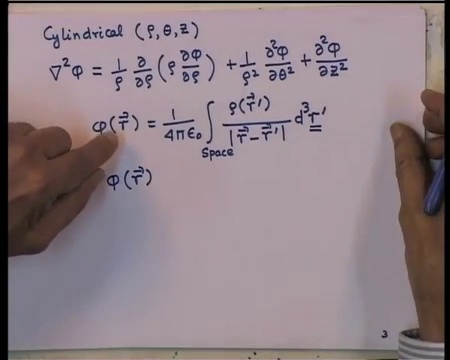 Cylindrical (ρ, θ, z)
∇²φ = 1/ρ ∂/∂ρ (ρ ∂φ/∂ρ) + 1/ρ² ∂²φ/∂θ² + ∂²φ/∂z²
φ(r⃗) = 1/4πε₀ ∫Space ρ(r⃗')/|r⃗ − r⃗'| d³r'
φ(r⃗)
3